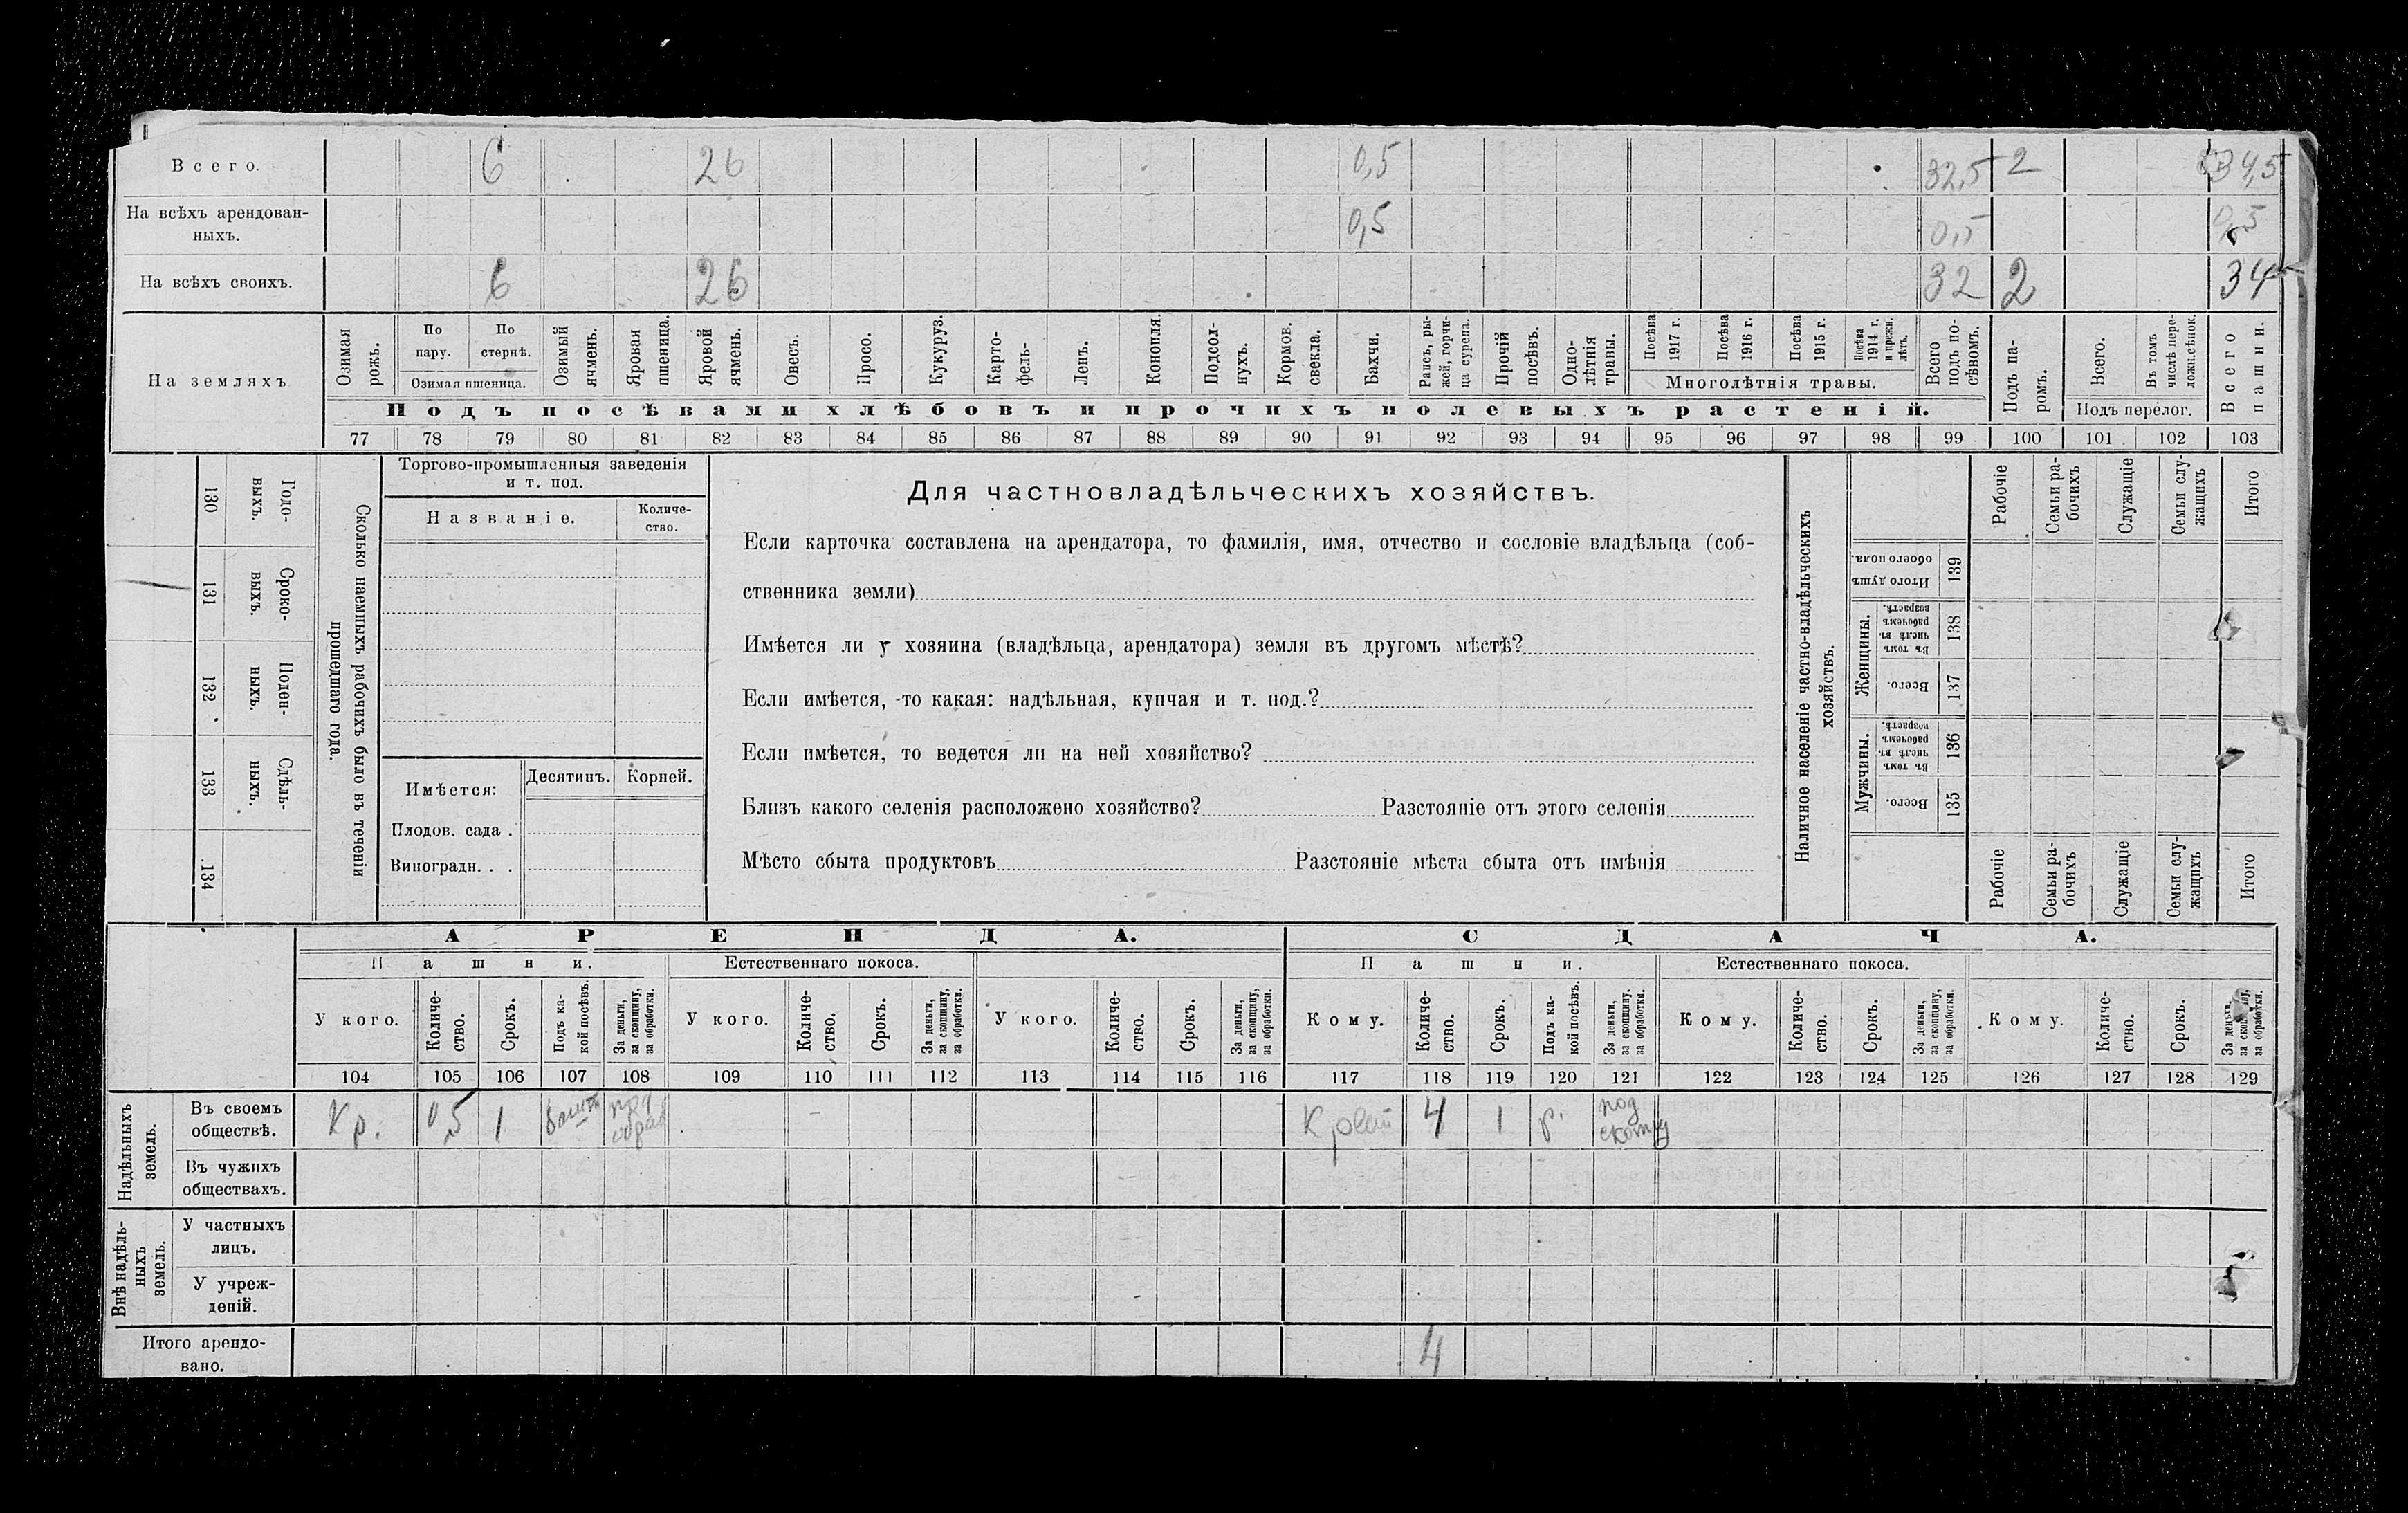 Всего. 6 26 0,5 32,5 2 34,5
На всѣхъ арендован-
ныхъ. 0,5 0,5 0,5
На всѣхъ своихъ. 6 26 32 2 34
На земляхъ
Озимая рожь.
По пару.
По стернѣ.
Озимая пшеница.
Озимый ячмень.
Яровая пшеница.
Яровой ячмень.
Овесъ.
Просо.
Кукуруз.
Карто-
фель-
Ленъ.
Конопля.
Подсол-
нухъ.
Кормов. свекла.
Бахчи.
Рапсъ, ры-
жей, горчи-
ца сурепа.
Прочій посѣвъ.
Одно-
лѣтнія
травы.
Посѣва 1917 г.
Посѣва 1916 г.
Посѣва 1915 г.
Посѣва 1914 г. и прежн. лѣтъ.
Многолѣтнія травы.
Всего подъ по-
сѣвомъ.
Подъ па-
ромъ.
Всего.
Въ томъ числѣ пере-
ложн.сѣнок.
Подъ перелог.
Всего пашни.
Подъ посѣвами хлѣбовъ и прочихъ полевыхъ растеній.
77 78 79 80 81 82 83 84 85 86 87 88 89 90 91 92 93 94 95 96 97 98 99 100 101 102 103
130 Годо-
выхъ.
131 Сроко-
выхъ.
132 Поден-
ныхъ.
133 Сдѣль-
ныхъ.
134
Сколько наемныхъ рабочихъ было въ теченіи
прошедшаго года.
Торгово-промышленныя заведенія
и т. под.
Названіе.
Количе-
ство.
Имѣется: Десятинъ. Корней.
Плодов. сада .
Виноградн. . .
Для частновладѣльческихъ хозяйствъ.
Если карточка составлена на арендатора, то фамилія, имя, отчество и сословіе владѣльца (соб-
ственника земли)
Имѣется ли у хозяина (владѣльца, арендатора) земля въ другомъ мѣстѣ?
Если имѣется, -то какая: надѣльная, купчая и т. под.?
Если имѣется, то ведется ли на ней хозяйство?
Близъ какого селенія расположено хозяйство? Разстояніе отъ этого селенія
Мѣсто сбыта продуктовъ Разстояніе мѣста сбыта отъ имѣнія
Наличное населеніе частно-владѣльческихъ
хозяйствъ.
Рабочіе
Семьи ра-
бочихъ
Служащіе
Семьи слу-
жащихъ
Итого
Итого душъ обоего пола. 139
Женщины.
Въ томъ числѣ въ рабочемъ возрастѣ. 138
Всего. 137
Мужчины.
Въ томъ числѣ въ рабочемъ возрастѣ. 136
Всего. 135
Рабочіе
Семьи ра-
бочихъ
Служащіе
Семьи слу-
жащихъ
Итого
АРЕНДА. СДАЧА.
Пашни. Естественнаго покоса. Пашни. Естественнаго покоса.
У кого.
Количе-
ство.
Срокъ.
Подъ ка-
кой посѣвъ.
За деньги,
за скопщину,
за обработки.
У кого.
Количе-
ство.
Срокъ.
За деньги,
за скопщину,
за обработки.
У кого.
Количе-
ство.
Срокъ.
За деньги,
за скопщину,
за обработки.
Кому.
Количе-
ство.
Срокъ.
Подъ ка-
кой посѣвъ.
За деньги,
за скопщину,
за обработки.
Кому.
Количе-
ство.
Срокъ.
За деньги,
за скопщину,
за обработки.
Кому.
Количе-
ство.
Срокъ.
За деньги,
за скопщину,
за обработки.
104 105 106 107 108 109 110 111 112 113 114 115 116 117 118 119 120 121 122 123 124 125 126 127 128 129
Надѣльныхъ
земель.
Въ своемъ
обществѣ. Кр. 0,5 1 под 4 1 р. под
Въ чужихъ
обществахъ.
Внѣ надѣль-
ныхъ
земель.
У частныхъ
лицъ.
У учреж-
деній.
Итого арендо-
вано. 4